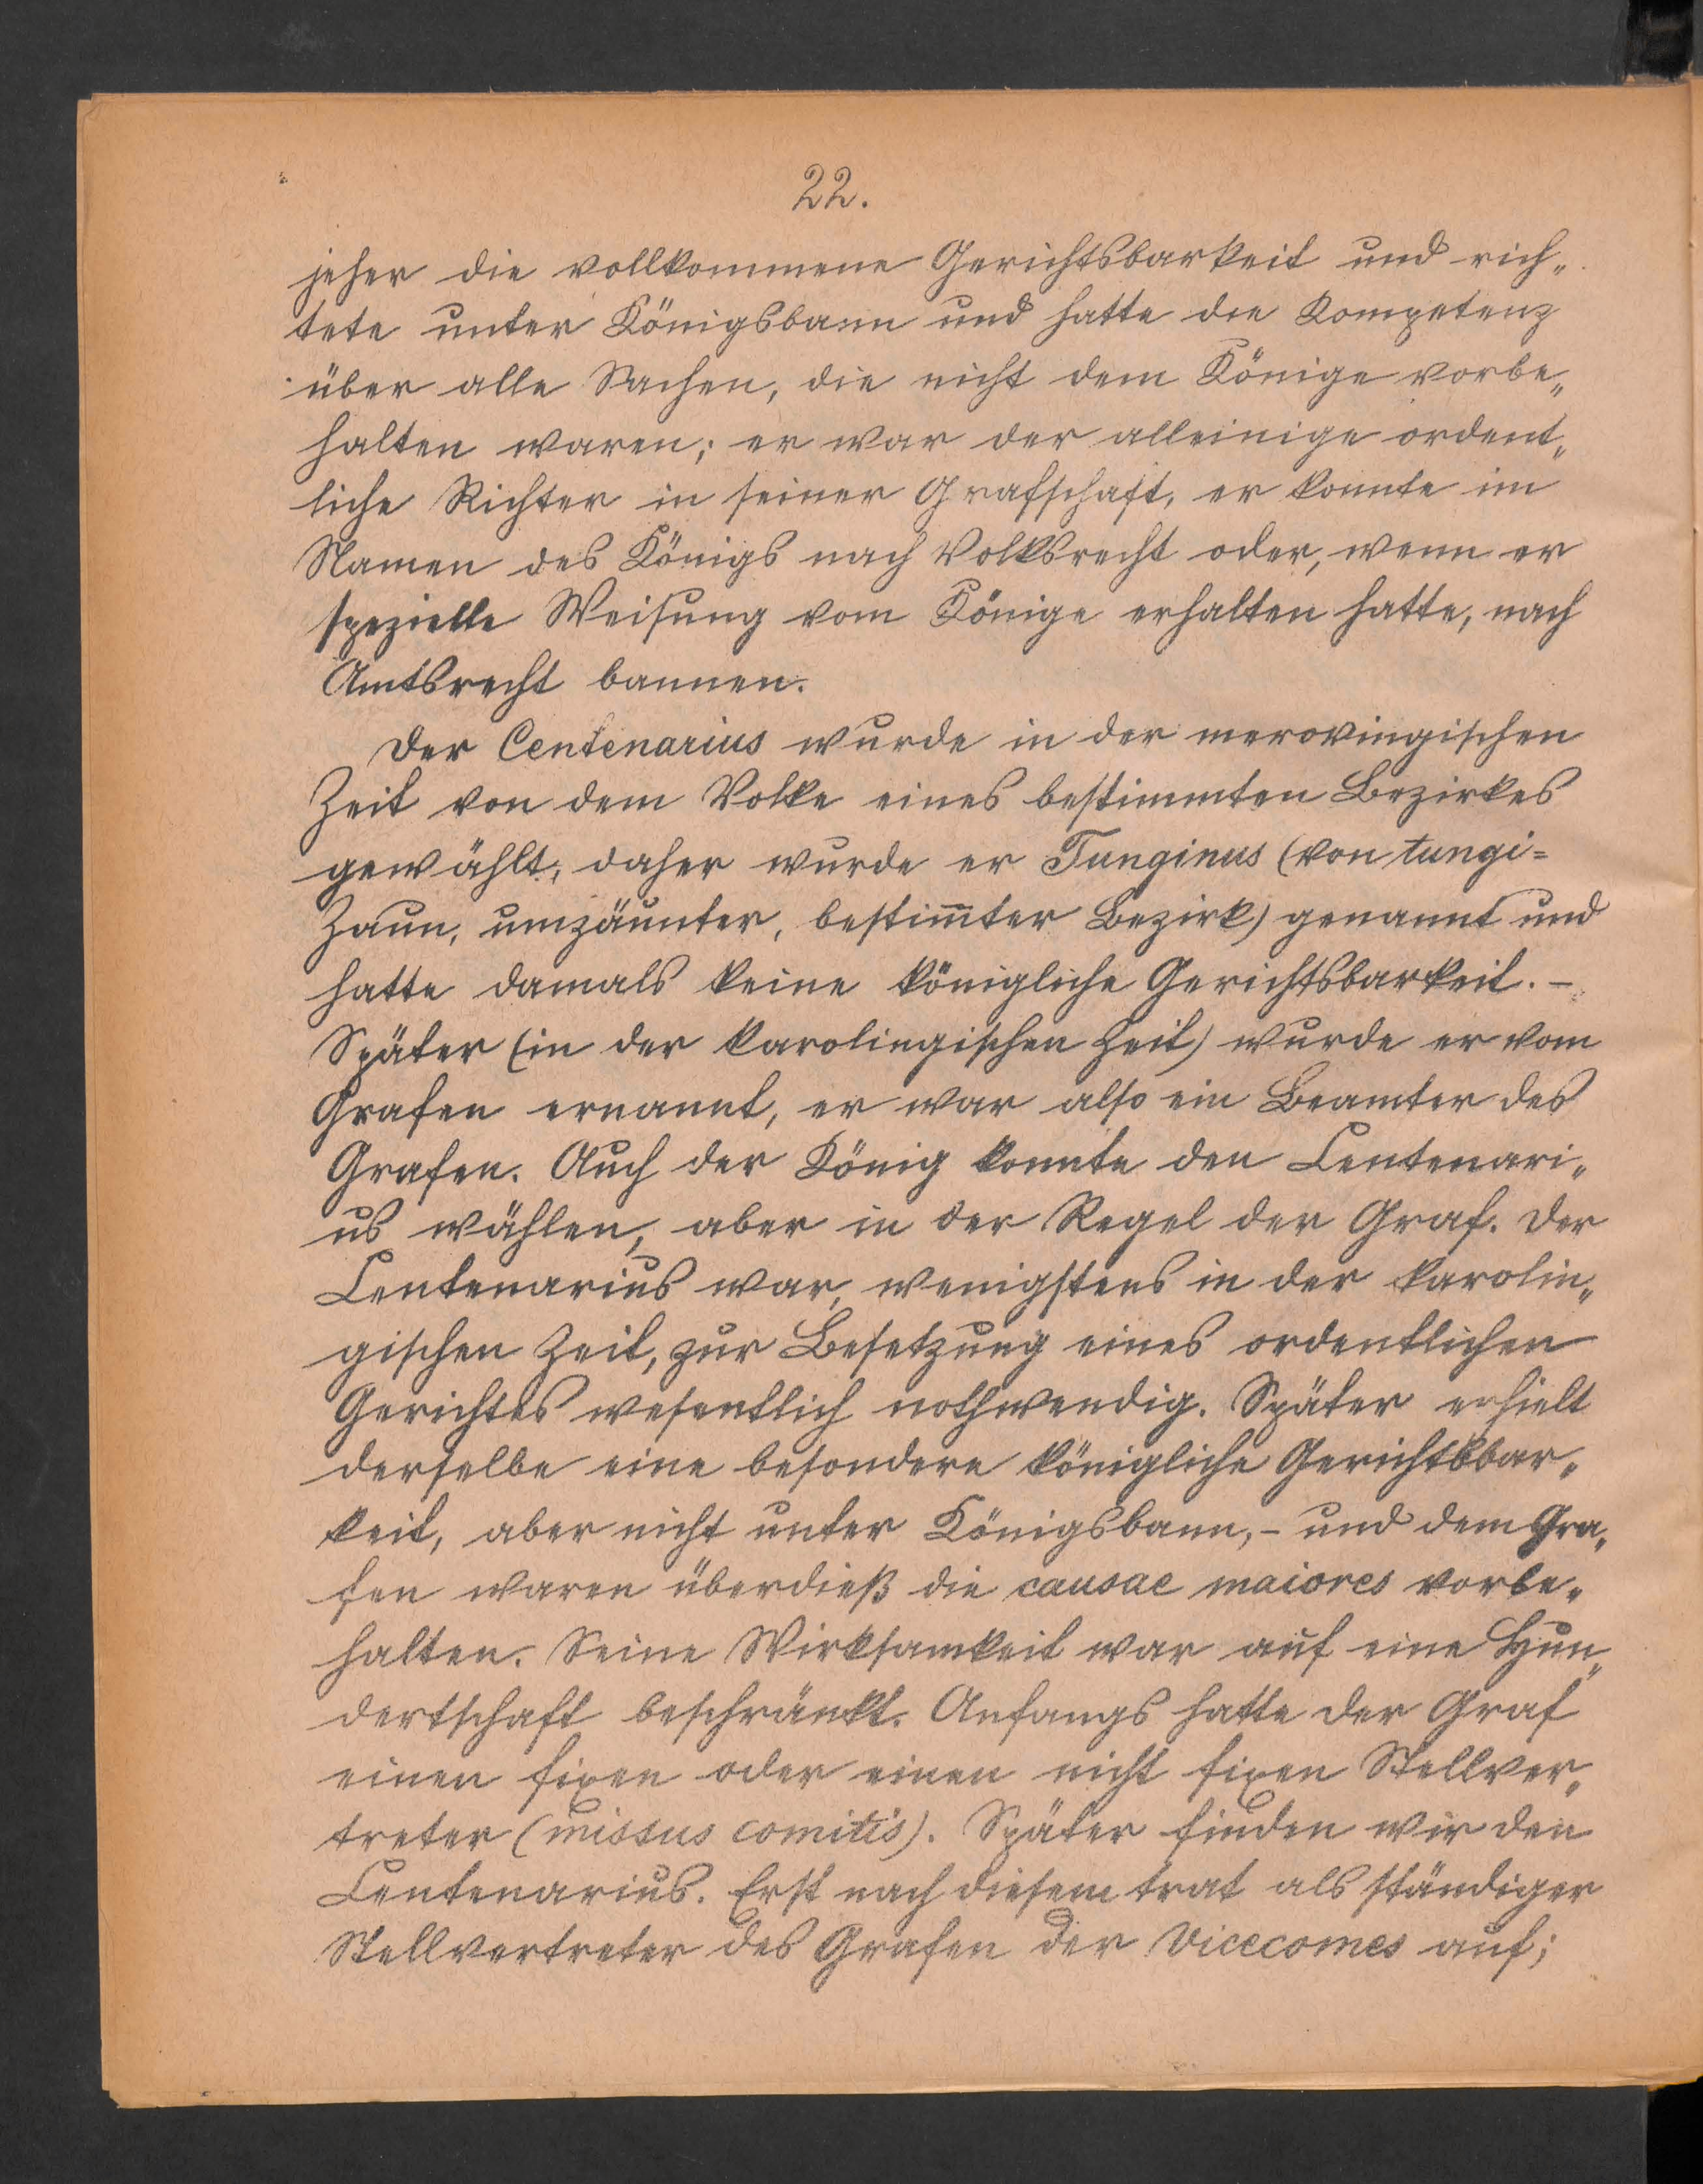 22.
jeher die vollkommene Gerichtsbarkeit und rich„
tete unter Königsbann und hatte die Kompetenz
über alle Sachen, die nicht dem Könige vorbe„
halten waren; er war der alleinige ordent„
liche Richter in seiner Grafschaft, er konnte im
Namen des Königs nach Volksrecht oder, wenn er
spezielle Weisung vom Könige erhalten hatte, nach
Amtsrecht bannen.
Der Centenarius wurde in der merovingischen
Zeit von dem Volke eines bestimmten Bezirkes
gewählt; daher wurde er Tunginus (von tungi=
Zaun, umzäunter, bestim̅ter Bezirk) genannt und
hatte damals keine königliche Gerichtsbarkeit. –
Später (in der karolingischen Zeit) wurde er vom
Grafen ernannt, er war also ein Beamter des
Grafen. Auch der König konnte den Centenari„
us wählen, aber in der Regel der Graf. Der
Centenarius war, wenigstens in der karolin„
gischen Zeit, zur Besetzung eines ordentlichen
Gerichtes wesentlich nothwendig. Später erhielt
derselbe eine besondere königliche Gerichtsbar„
keit, aber nicht unter Königsbann, – und dem Gra„
fen waren überdieß die causae maiores vorbe„
halten. Seine Wirksamkeit war auf eine Hun„
dertschaft beschränkt. Anfangs hatte der Graf
einen fixen oder einen nicht fixen Stellver„
treter (missus comitis). Später finden wir den
Centenarius. Erst nach diesem trat als ständiger
Stellvertreter des Grafen der Vicecomes auf;